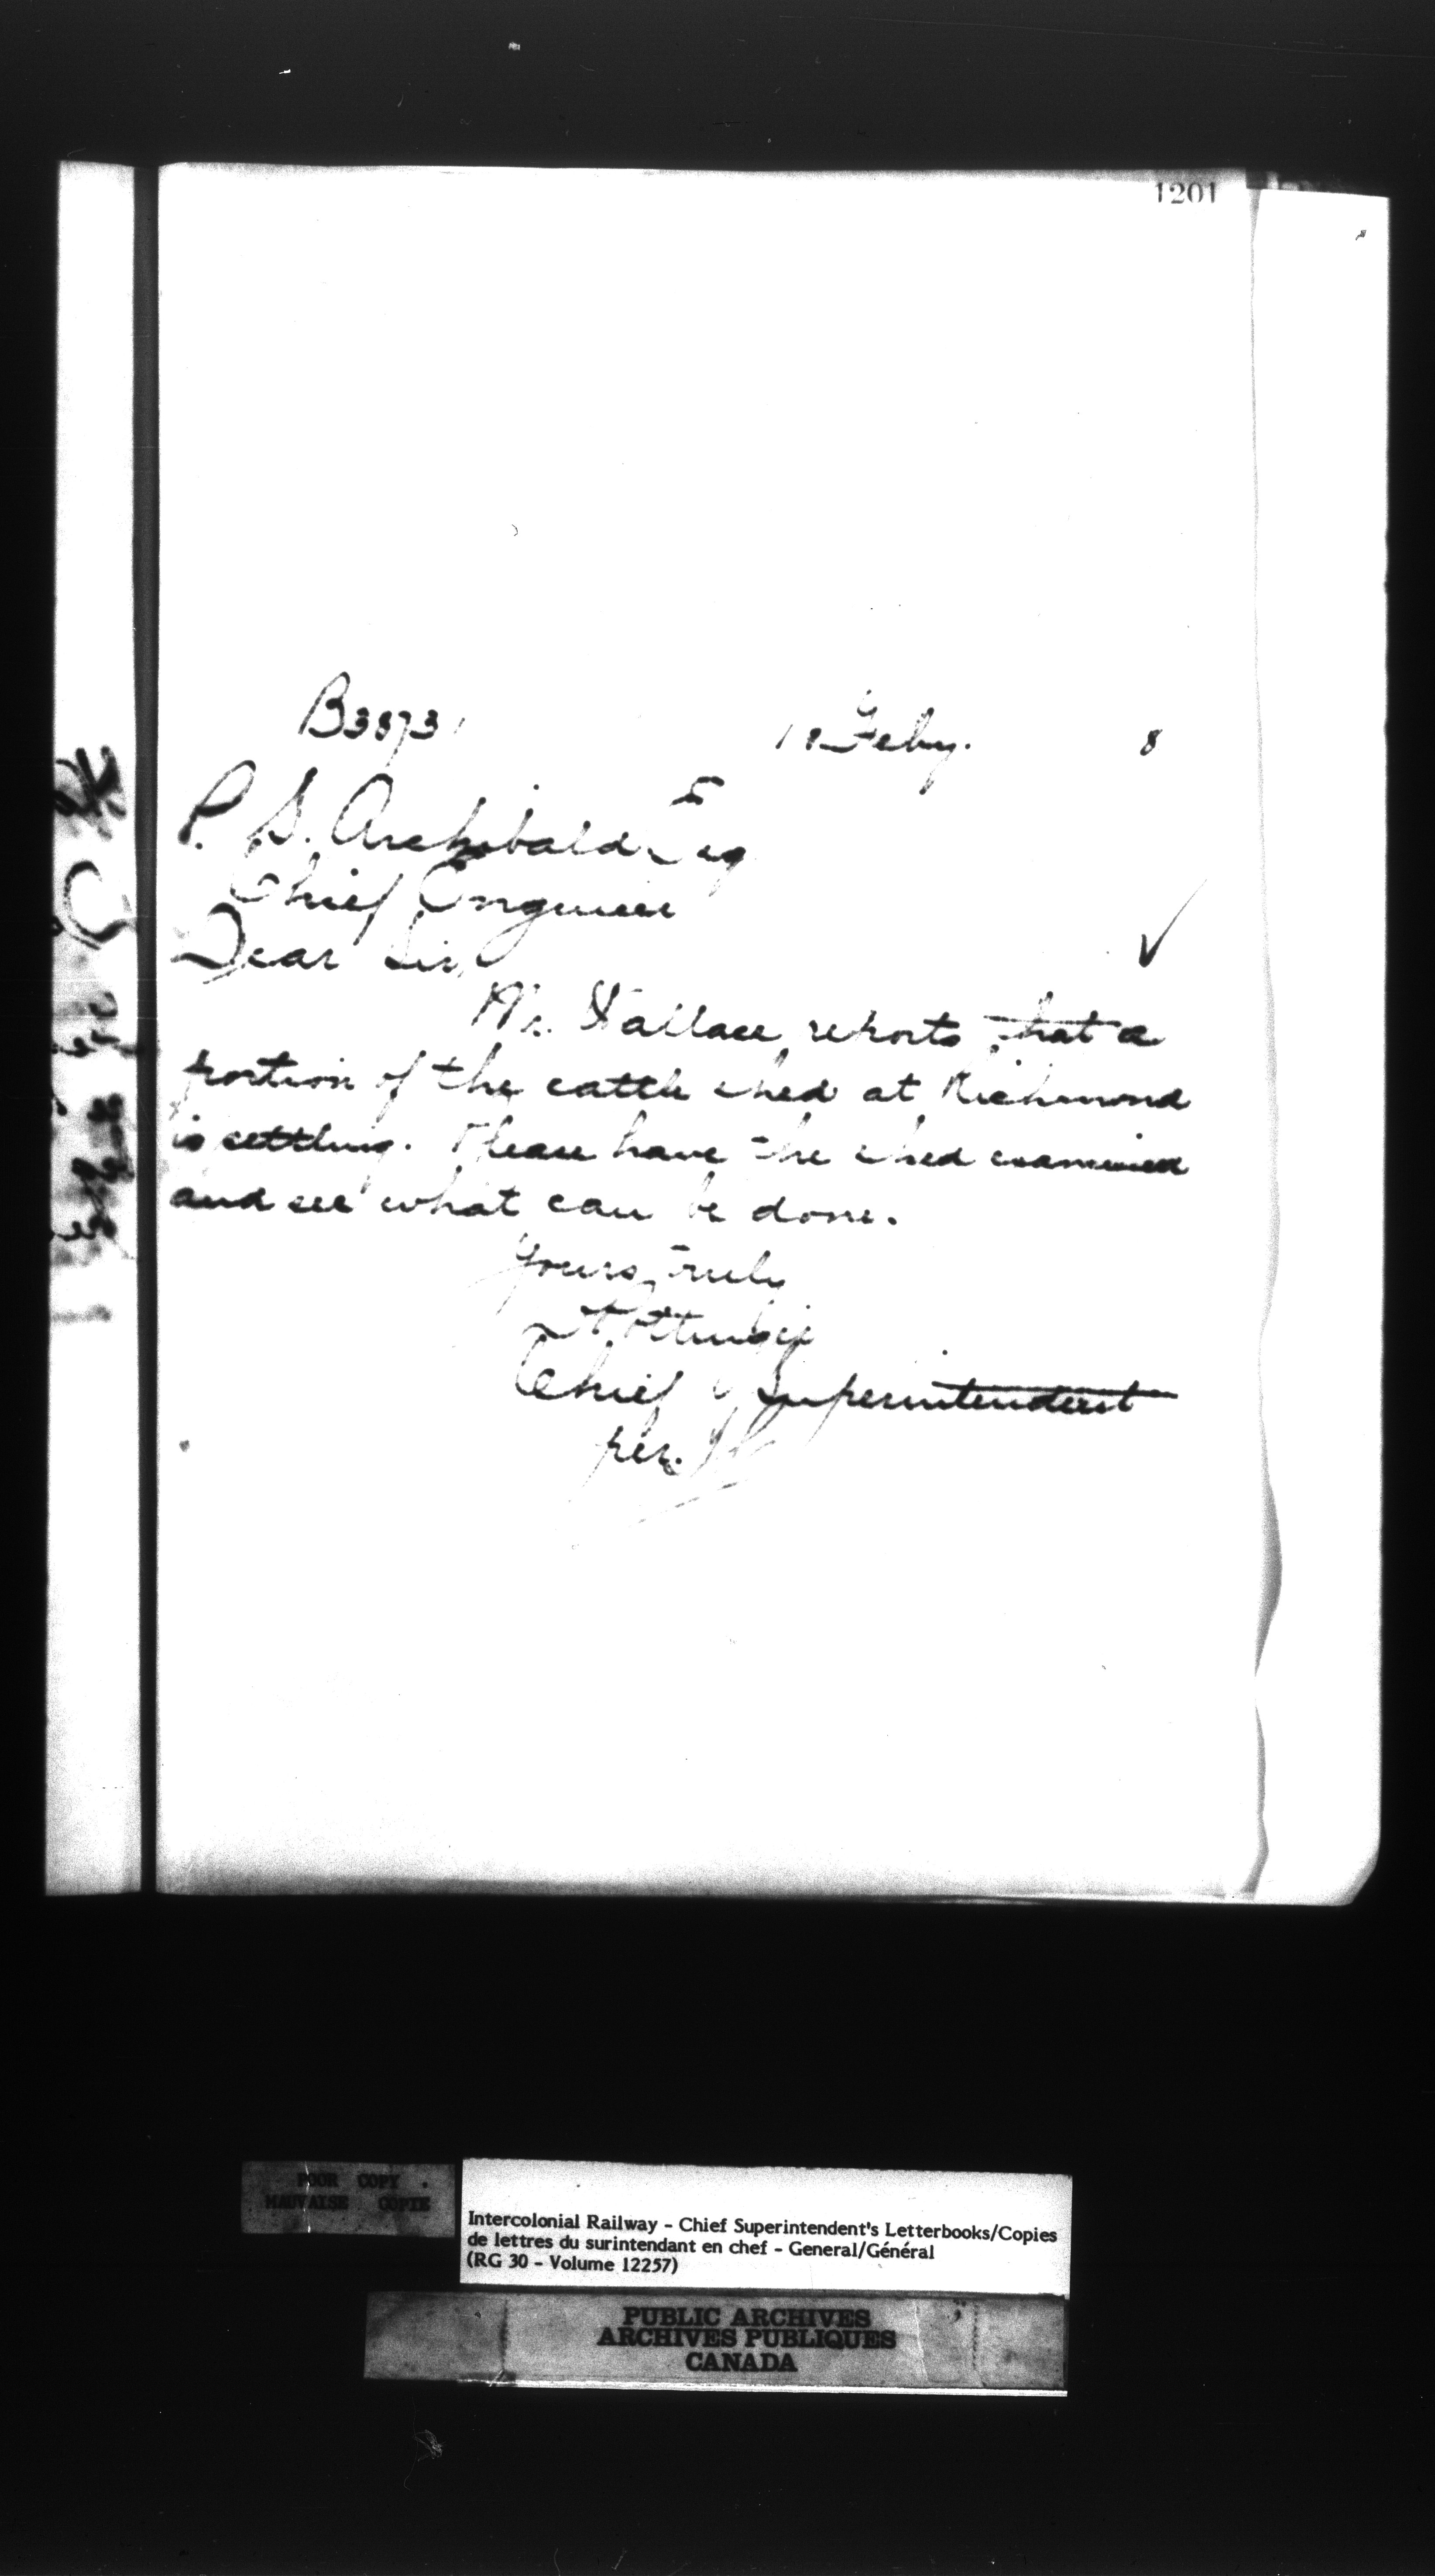 1201
B3873
18 Feby. 8
P. S. Archibald Esq
Chief Engineer
Dear Sir,
Mr. Wallace reports that a
portion of the cattle shed at Richmond
is settling. Please have the shed examined
and see what can be done.
Yours truly
Pottinger
Chief Superintendent
per.
POOR COPY
MAUVAISE COPIE
Intercolonial Railway - Chief Superintendent's Letterbooks/Copies
de lettres du surintendant en chef - General/Général
(RG 30 - Volume 12257)
PUBLIC ARCHIVES
ARCHIVES PUBLIQUES
CANADA